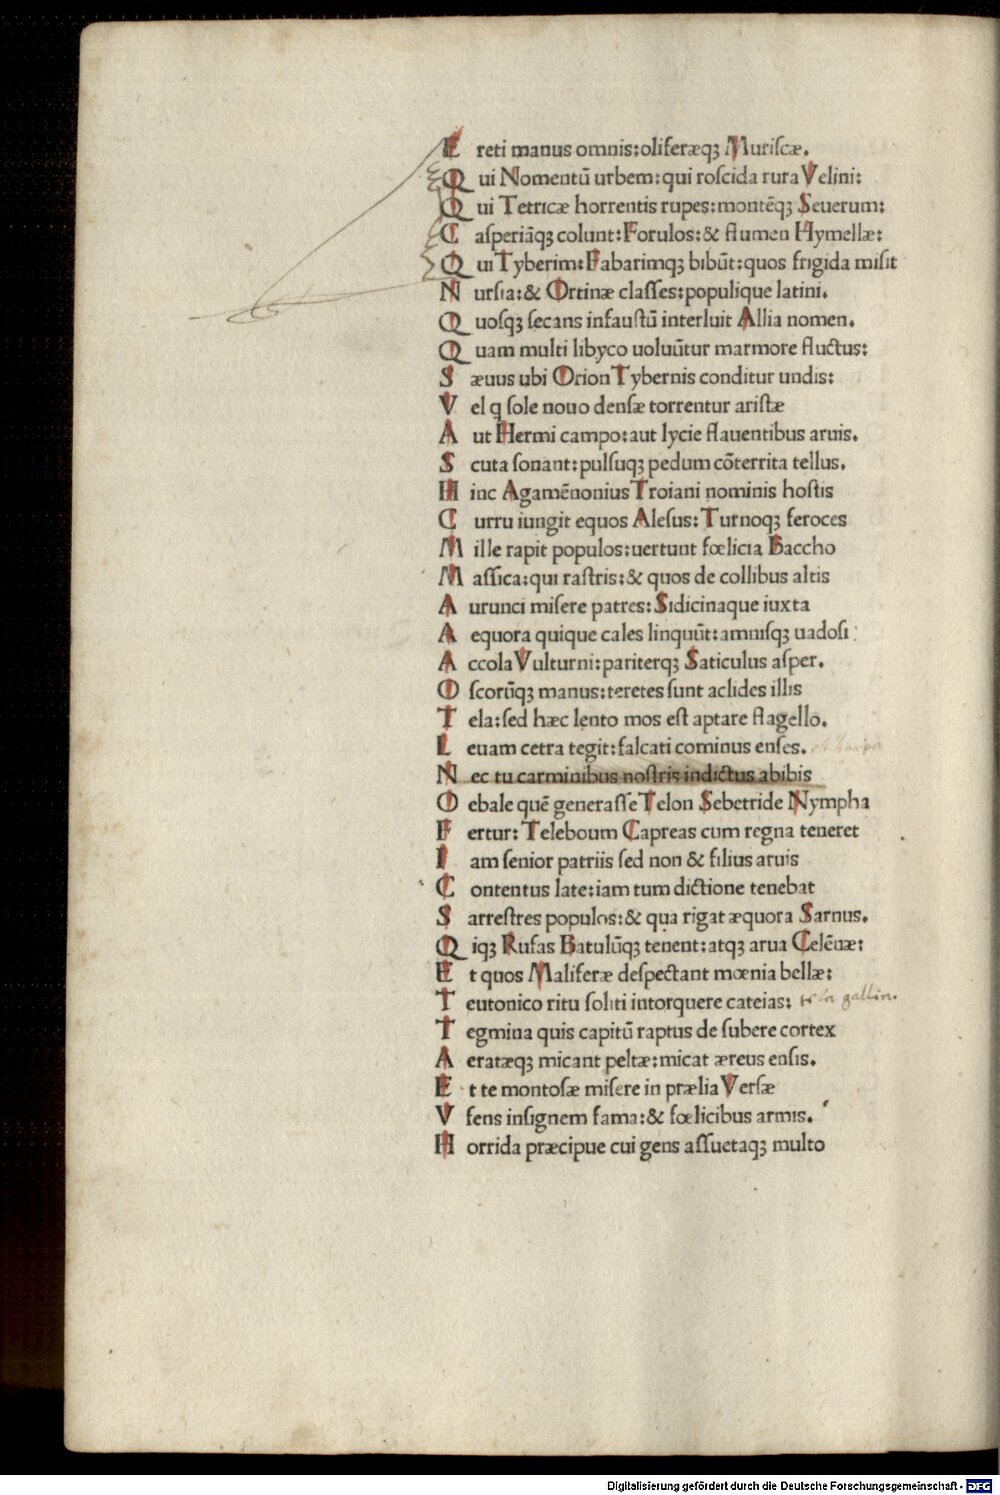 E reti manus omnis:oliferæqꝫ Mutiſcæ.
Q ui Nomentū urbem:qui roſcida rura Velini:
Q ui Tetricæ horrentis rupes:montēqꝫ Seuerum:
C aſperiāqꝫ colunt:Forulos:& flumen Hymellæ:
Q ui Tyberim:Fabarimqꝫ bibūt:quos frigida miſit
N urſia:& Ortinæ claſſes:populique latini.
Q uoſqꝫ ſecans infauſtū interluit Allia nomen.
Q uam multi libyco uoluūtur marmore fluctus:
S æuus ubi Orion Tybernis conditur undis:
V el q ſole nouo denſæ torrentur ariſtæ
A ut Hermi campo:aut lycie flauentibus aruis.
S cuta ſonant:pulſuqꝫ pedum cōterrita tellus.
H inc Agamēnonius Troiani nominis hoſtis
C urru iungit equos Aleſus:Turnoqꝫ feroces
M ille rapit populos:uertunt fœlicia Baccho
M aſſica:qui raſtris:& quos de collibus altis
A urunci miſere patres:Sidicinaque iuxta
A equora quique cales linquūt:amniſqꝫ uadoſi:
A ccola Vulturni:pariterqꝫ Saticulus aſper.
O ſcorūqꝫ manus:teretes ſunt aclides illis
T ela:ſed hæc lento mos eſt aptare flagello.
L euam cetra tegit:falcati cominus enſes.
N ec tu carminibus noſtris indictus abibis
O ebale quē generaſſe Telon Sebetride Nympha
F ertur:Teleboum Capreas cum regna teneret
I am ſenior patriis ſed non & filius aruis
C ontentus late:iam tum dictione tenebat
S arreſtres populos:& qua rigat æquora Sarnus.
Q iqꝫ Rufas Batulūqꝫ tenent:atqꝫ arua Celēnæ:
E t quos Maliferæ deſpectant mœnia bellæ:
T eutonico ritu ſoliti intorquere cateias: gallica.
T egmina quis capitū raptus de ſubere cortex
A eratæqꝫ micant peltæ:micat æreus enſis.
E t te montoſæ miſere in prælia Verſæ
V ſens inſignem fama:& fœlicibus armis.
H orrida præcipue cui gens aſſuetaqꝫ multo
Digitalisierung gefördert durch die Deutsche Forschungsgemeinschaft - DFG